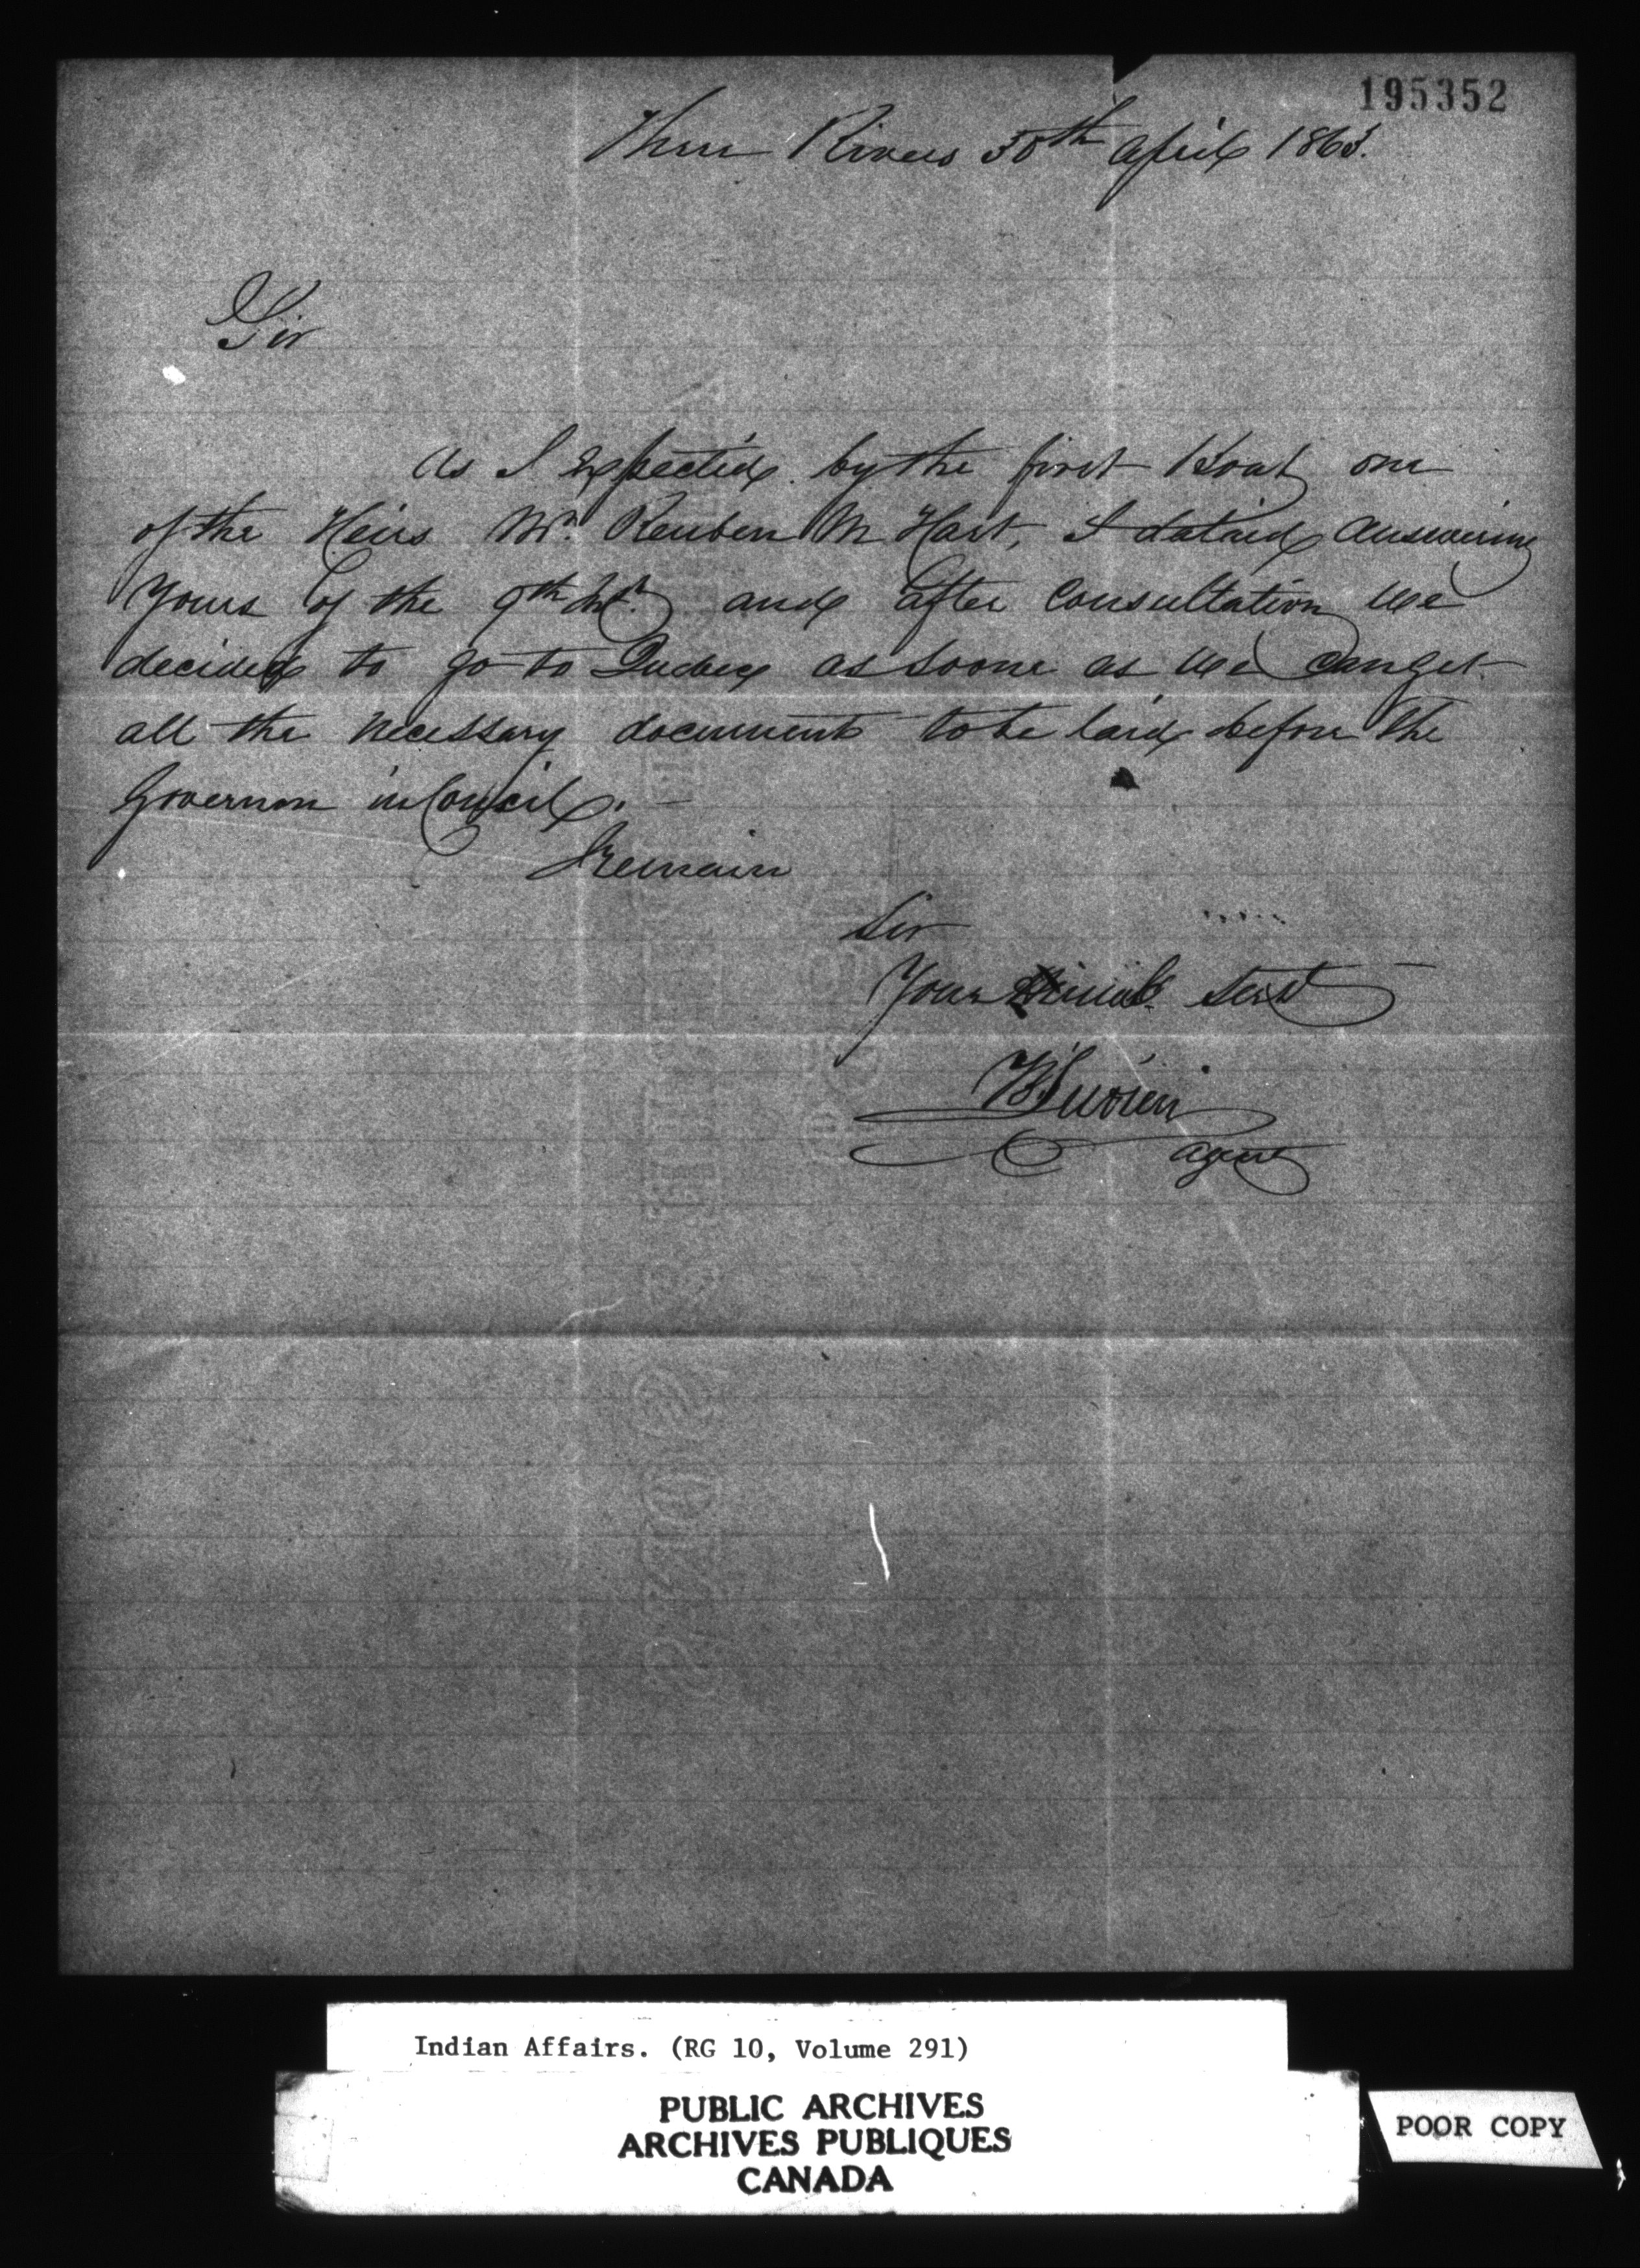 195352
Three Rivers 30th April 1863.
Sir
As I Expected by the first Boat one
of the Heirs Mr. Reuben M Hart, I delaid answering
Yours of the 9th Inst. and after Consultation we
decided to go to Quebec as soone as we can get
all the necessary documents to be laid before the
Governor in Council. —
I remain
Sir
Your Humb. Servt
Agent
Indian Affairs. (RG 10, Volume 291)
PUBLIC ARCHIVES
ARCHIVES PUBLIQUES
CANADA
POOR COPY